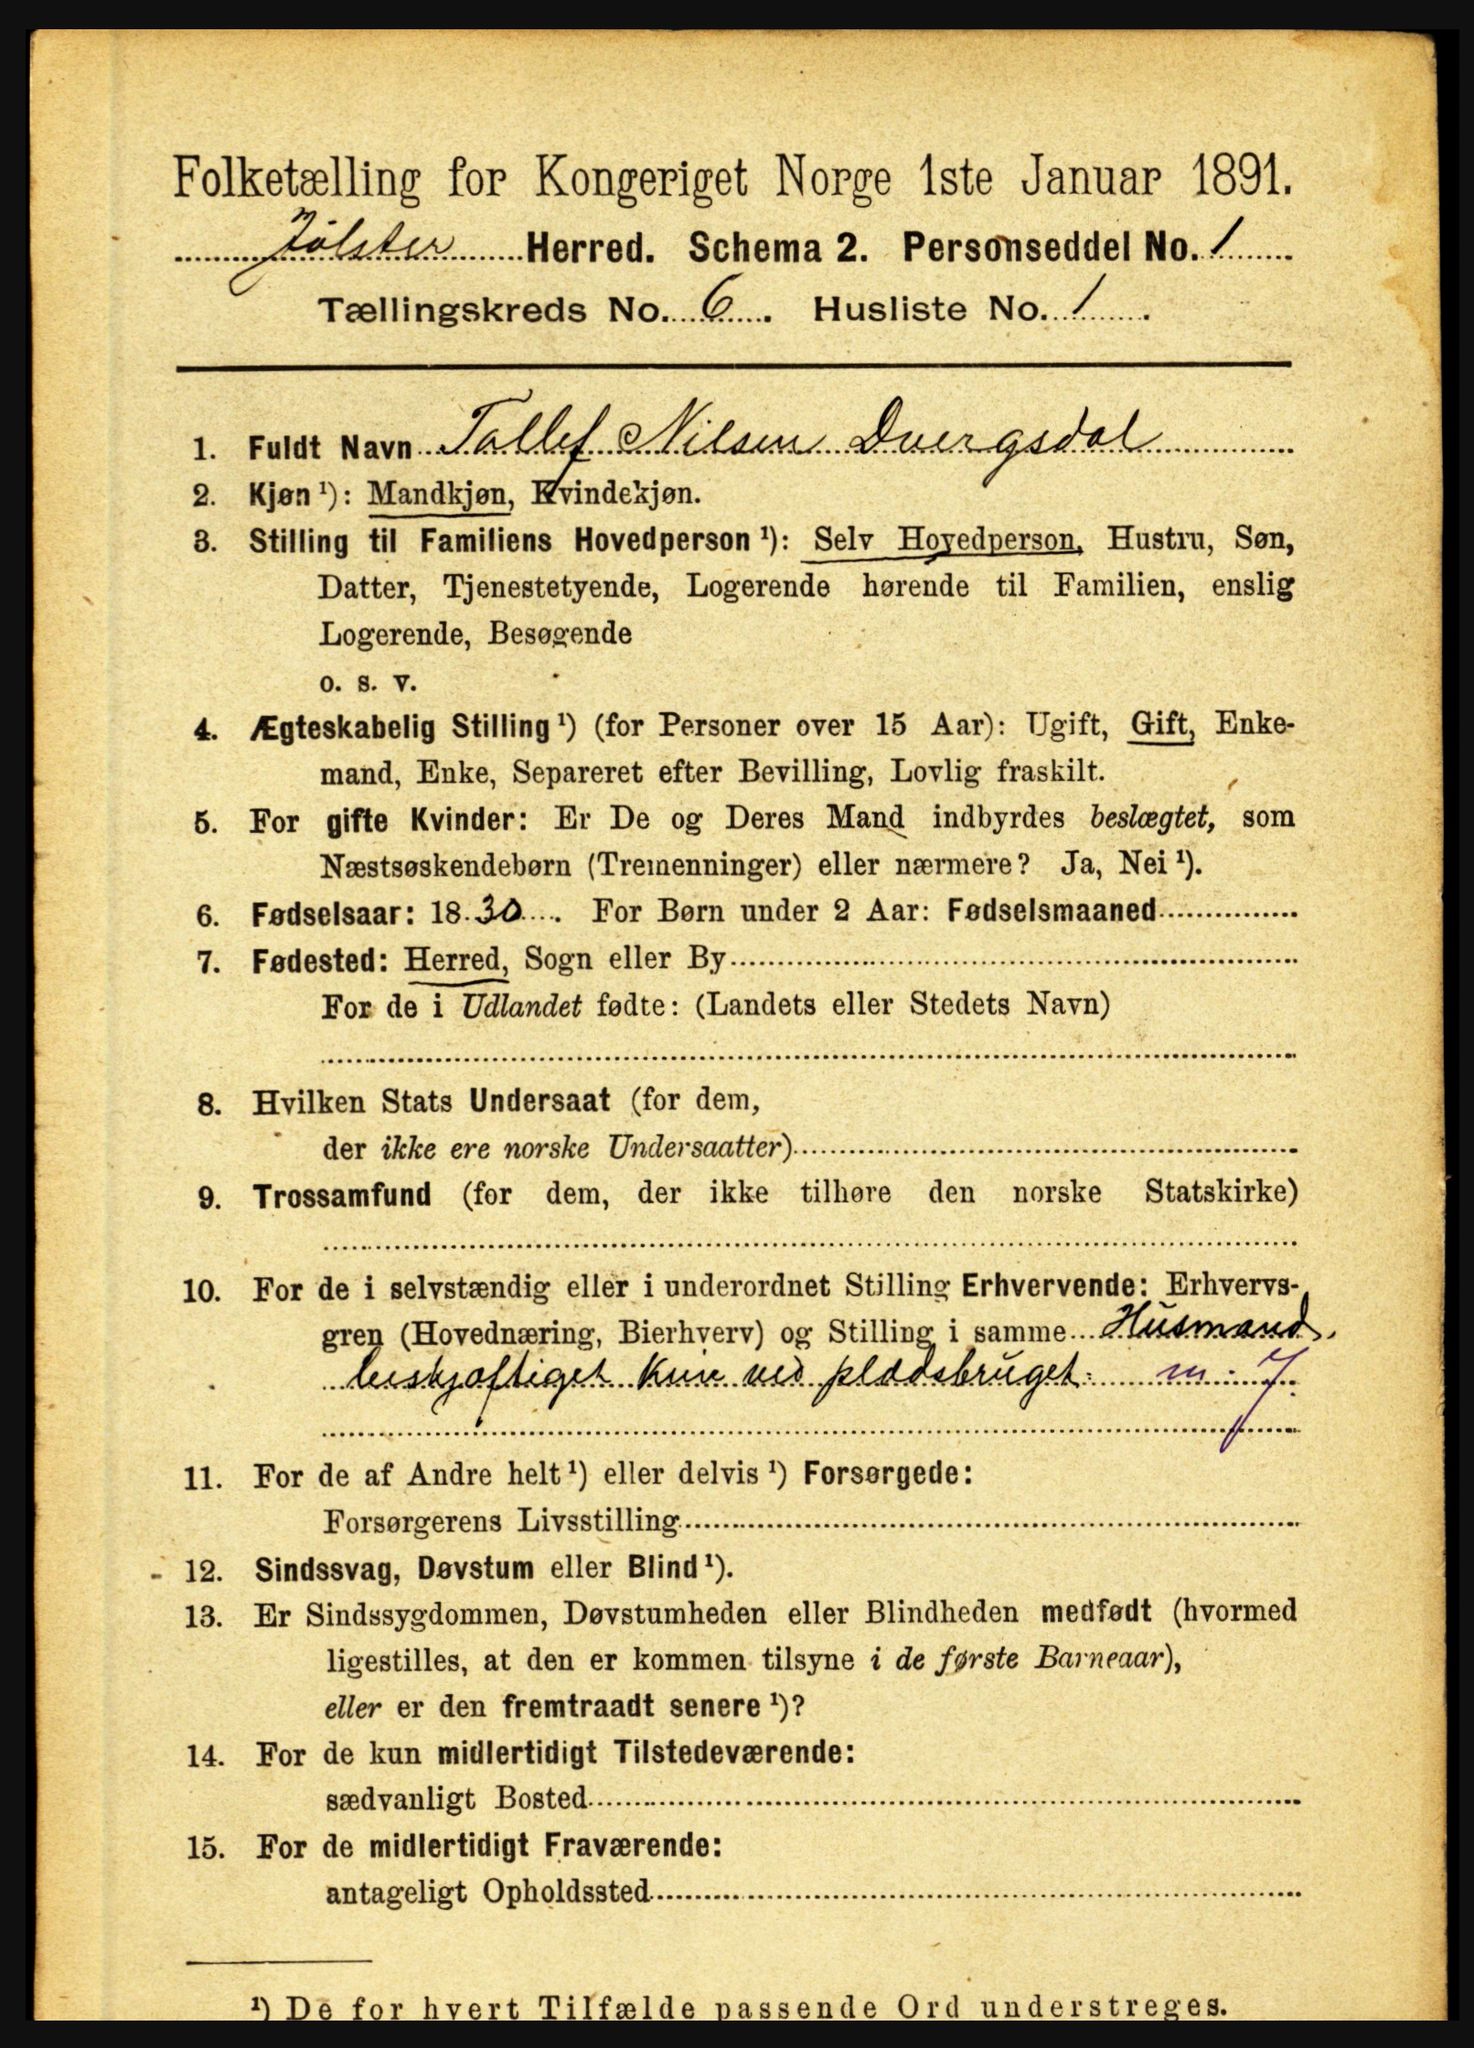 Folketælling for Kongeriget Norge 1ste Januar 1891.
Jølster Herred. Schema 2. Personseddel No. 1
Tællingskreds No. 6. Husliste No. 1.
1. Fuldt Navn Tollef Nilsen Dvergsdal
2. Kjøn¹): Mandkjøn, Kvindekjøn.
3. Stilling til Familiens Hovedperson¹): Selv Hovedperson, Hustru, Søn,
Datter, Tjenestetyende, Logerende hørende til Familien, enslig
Logerende, Besøgende
o. s. v.
4. Ægteskabelig Stilling¹) (for Personer over 15 Aar): Ugift, Gift, Enke-
mand, Enke, Separeret efter Bevilling, Lovlig fraskilt.
5. For gifte Kvinder: Er De og Deres Mand indbyrdes beslægtet, som
Næstsøskendebørn (Tremenninger) eller nærmere? Ja, Nei¹).
6. Fødselsaar: 1830. For Børn under 2 Aar: Fødselsmaaned
7. Fødested: Herred, Sogn eller By
For de i Udlandet fødte: (Landets eller Stedets Navn)
8. Hvilken Stats Undersaat (for dem,
der ikke ere norske Undersaatter)
9. Trossamfund (for dem, der ikke tilhøre den norske Statskirke)
10. For de i selvstændig eller i underordnet Stilling Erhvervende: Erhvervs-
gren (Hovednæring, Bierhverv) og Stilling i samme Husmand.
beskjæftiget kun ved pladsbruget. m. J
11. For de af Andre helt¹) eller delvis¹) Forsørgede:
Forsørgerens Livsstilling
12. Sindssvag, Døvstum eller Blind¹).
13. Er Sindssygdommen, Døvstumheden eller Blindheden medfødt (hvormed
ligestilles, at den er kommen tilsyne i de første Barneaar),
eller er den fremtraadt senere¹)?
14. For de kun midlertidigt Tilstedeværende:
sædvanligt Bosted
15. For de midlertidigt Fraværende:
antageligt Opholdssted
¹) De for hvert Tilfælde passende Ord understreges.